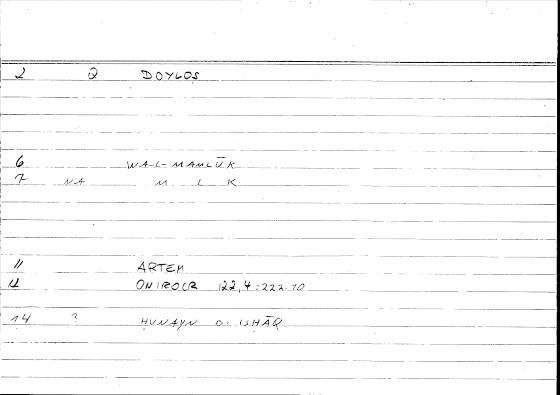 2 Q DOYLOS
6 WA-L-MAMLŪK
7 NA M L K
11 ARTEM
12 ONIROCR 122,4:222.10
14 ? HUNAYN B. ISHĀQ